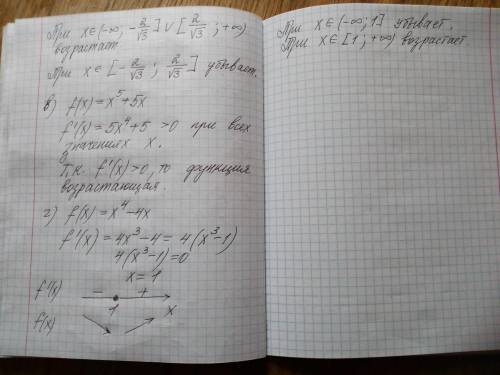 При x∈(-∞; -2/√3] ∪ [2/√3; +∞)
возрастает
При x∈ [-2/√3; 2/√3] убывает.
в) f(x) = x⁵+5x
f'(x) = 5x⁴+5 >0 при всех
значениях x.
Т.к. f'(x)>0, то функция
возрастающая.
г) f(x) = x⁴-4x
f'(x) = 4x³-4 = 4(x³-1)
4(x³-1)=0
x = 1
f'(x) - +
1 x
f(x)
При x∈(-∞; 1] убывает.
При x∈[1; +∞) возрастает